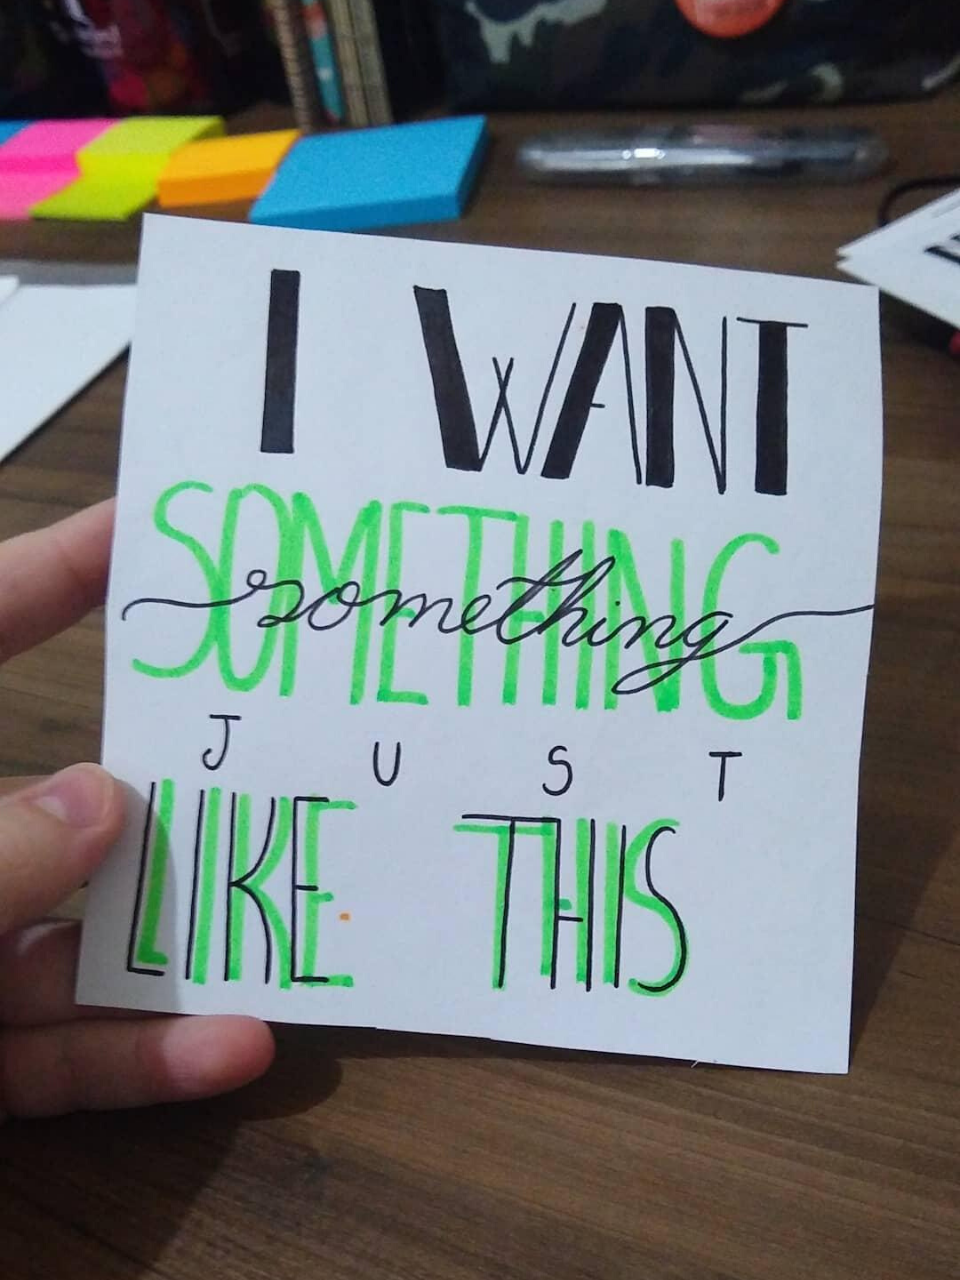 I WANT
SOMETHING
something
JUST
LIKE THIS